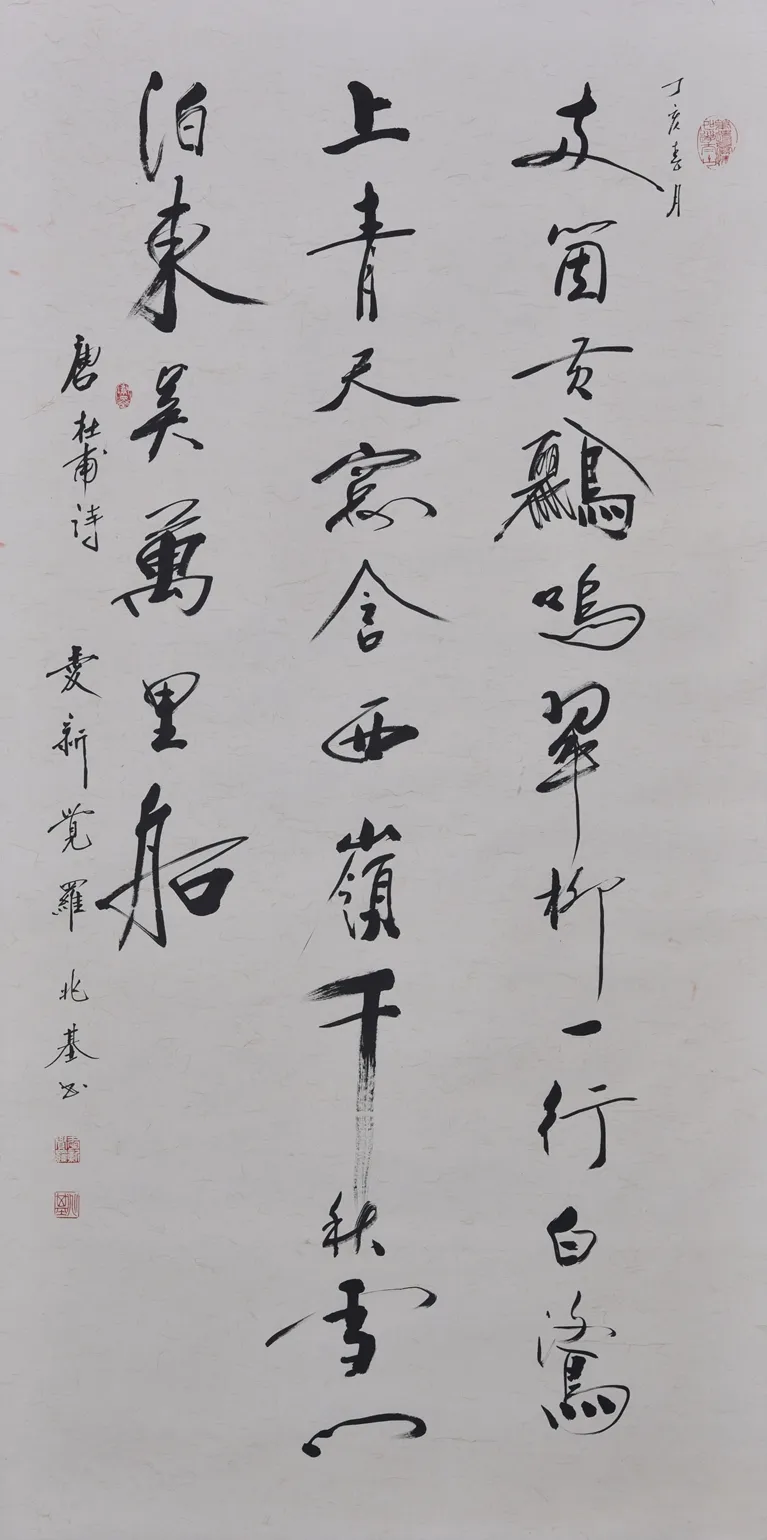 丁亥春月
兩箇黃鸝鳴翠柳一行白鷺
上青天窓含西嶺千秋雪門
泊東吳萬里船
唐杜甫詩 愛新覚羅兆基書